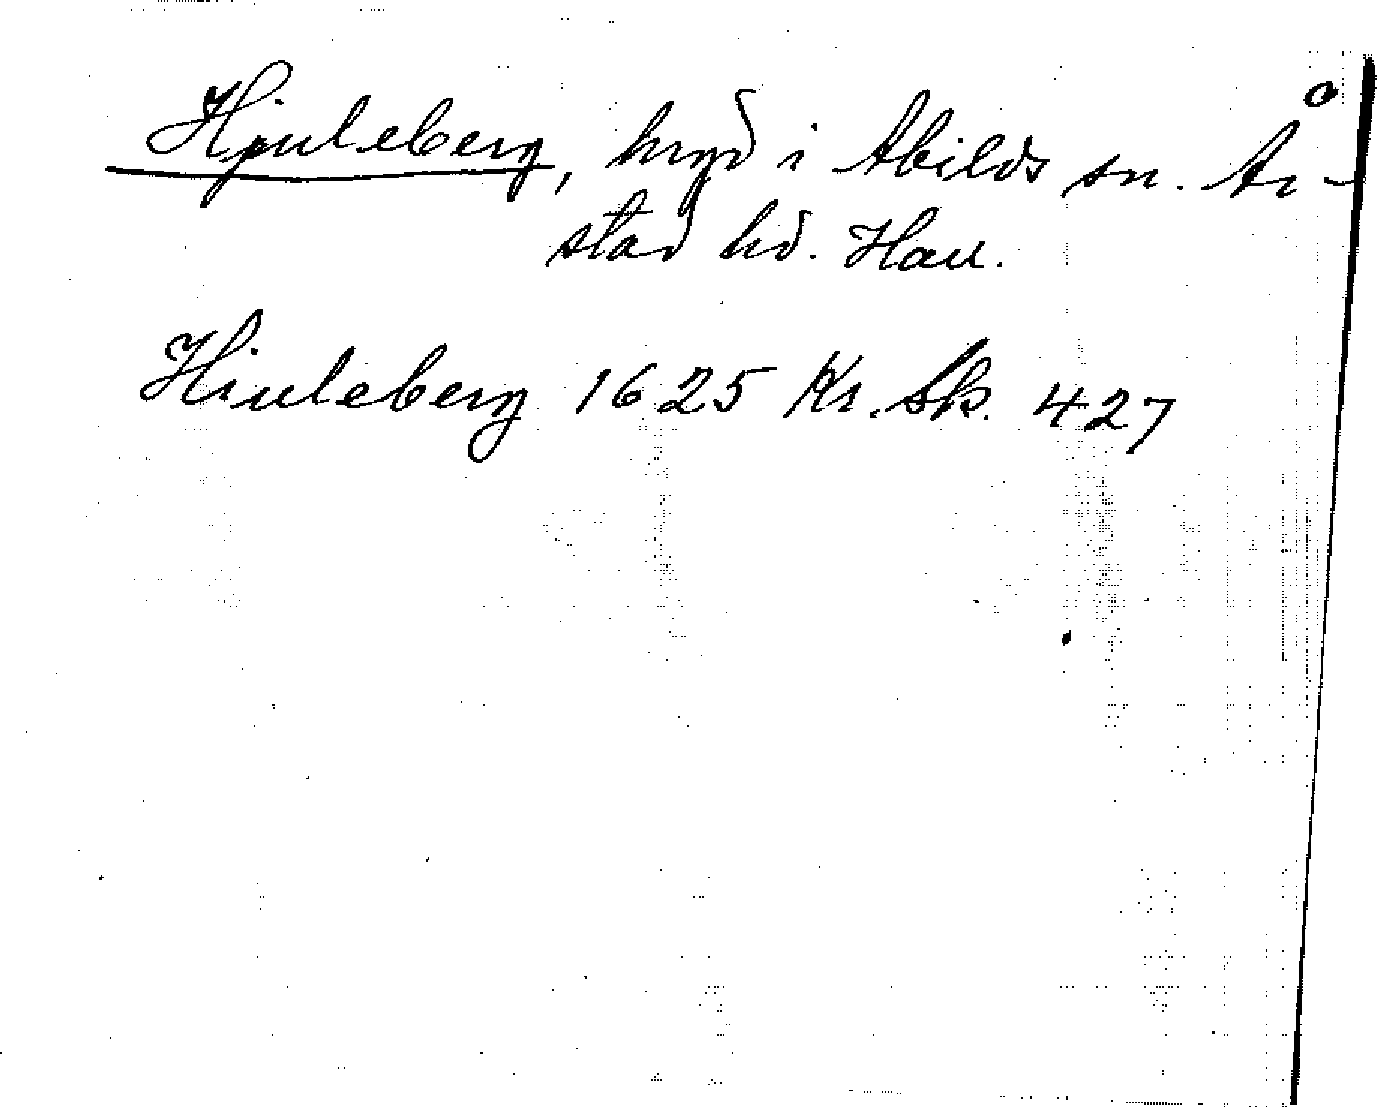 Hjuleberg, hrgd i Abilds sn. År-
stad hd. Hall.
Hiuleberg 1625 Kr. Sk. 427